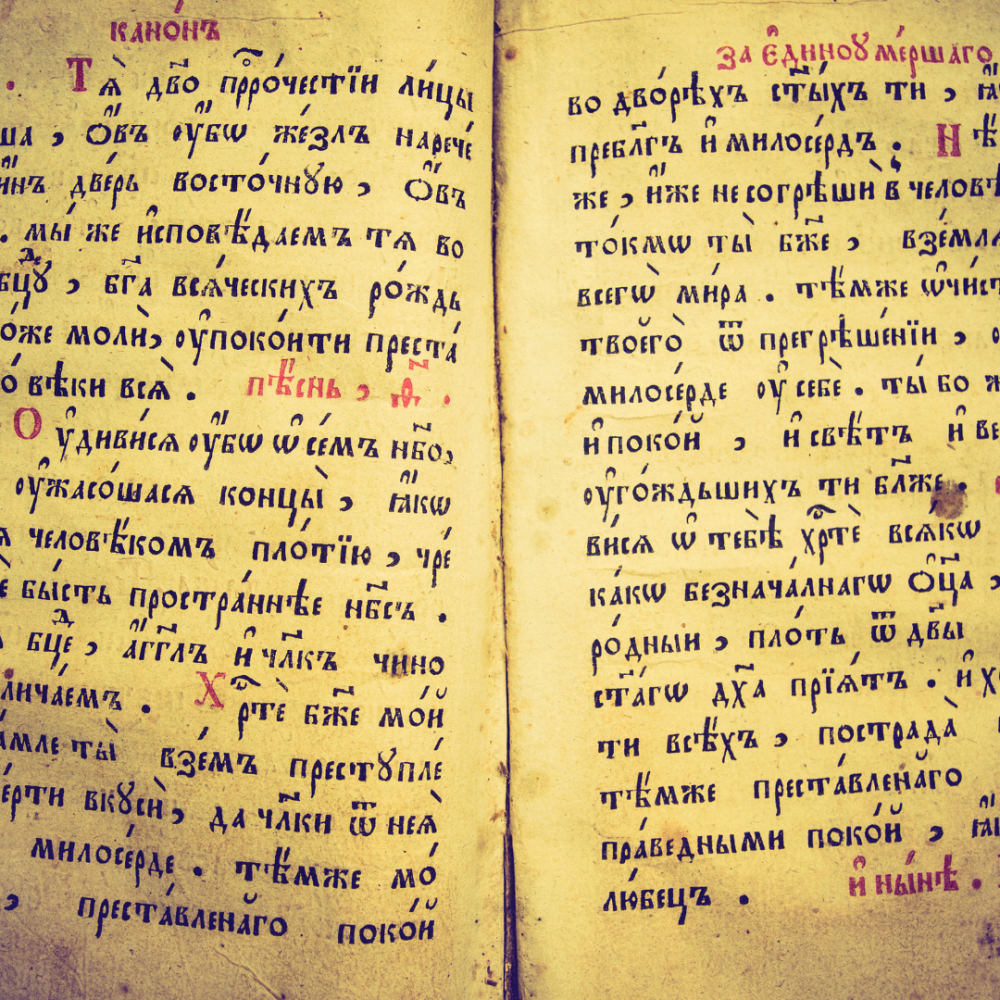 кано́нъ
Тѧ̀ дв҃о прⷪ҇ро́честїи ли́цы
ша , ѻ҆́въ ᲂу҆́бѡ же́злъ нарече́
и҆́нъ две́рь восто́чнꙋю , ѻ҆́въ
. мы́ же и҆сповѣ́даемъ тѧ во
бцⷣꙋ , бг҃а всѧ́ческихъ ро́ждь
о́же моли̑ , ᲂу҆поко́ити преста́
о́ вѣ́ки всѧ̀ . пѣ́снь , ѳ҃ .
Оу҆диви́сѧ ᲂу҆́бѡ ѡ҆ се́мъ нб҃о ,
ᲂу҆жасо́шасѧ концы̀ , ꙗ҆́кѡ
ѧ человѣ́комъ пло́тїю , чре́
бы́сть простра́ннѣе нб҃съ .
бцⷣе , а҆́гг҃лъ и҆ чл҃къ чино
лича́емъ . Хрⷭ҇тѐ бж҃е мо́й
а́мле ты̀ взе́мъ престꙋпле́
е́рти вкꙋсѝ , да чл҃ки ѿ неѧ̀
милосе́рде . тѣ́мже мо́
, преста́вленаго поко́й
за є҆ди́ноу ме́ршаго
во дво́рѣхъ ст҃ы́хъ ти , ꙗ҆́
пребл҃гъ и҆ милосе́рдъ . Нѣ́
же , и҆́же не согрѣшѝ в человѣ́
то́кмѡ ты̀ бж҃е , взе́млѧ
всегѡ̀ ми́ра . тѣ́мже ѡ҆чи́ст
твоего̀ ѿ прегрѣше́нїи ,
милосе́рде ᲂу҆ себѐ . ты́ бо ж
и҆ поко́й , и҆ свѣ́тъ и҆ ве
ᲂу҆го́ждьшихъ ти бл҃же .
ви́сѧ ѡ҆ тебѣ̀ хрⷭ҇тѐ всѧ́кѡ
ка́кѡ безнача́лнагѡ ѻ҆ц҃а ,
ро́дныи , пло́ть ѿ дв҃ы
ст҃а́гѡ дх҃а прїѧ́тъ . и҆ хо
ти всѣ́хъ , пострада̀
тѣ́мже преста́вленаго
пра́ведными поко́й , ꙗ҆́
лю́бецъ . и҆ ны́нѣ .